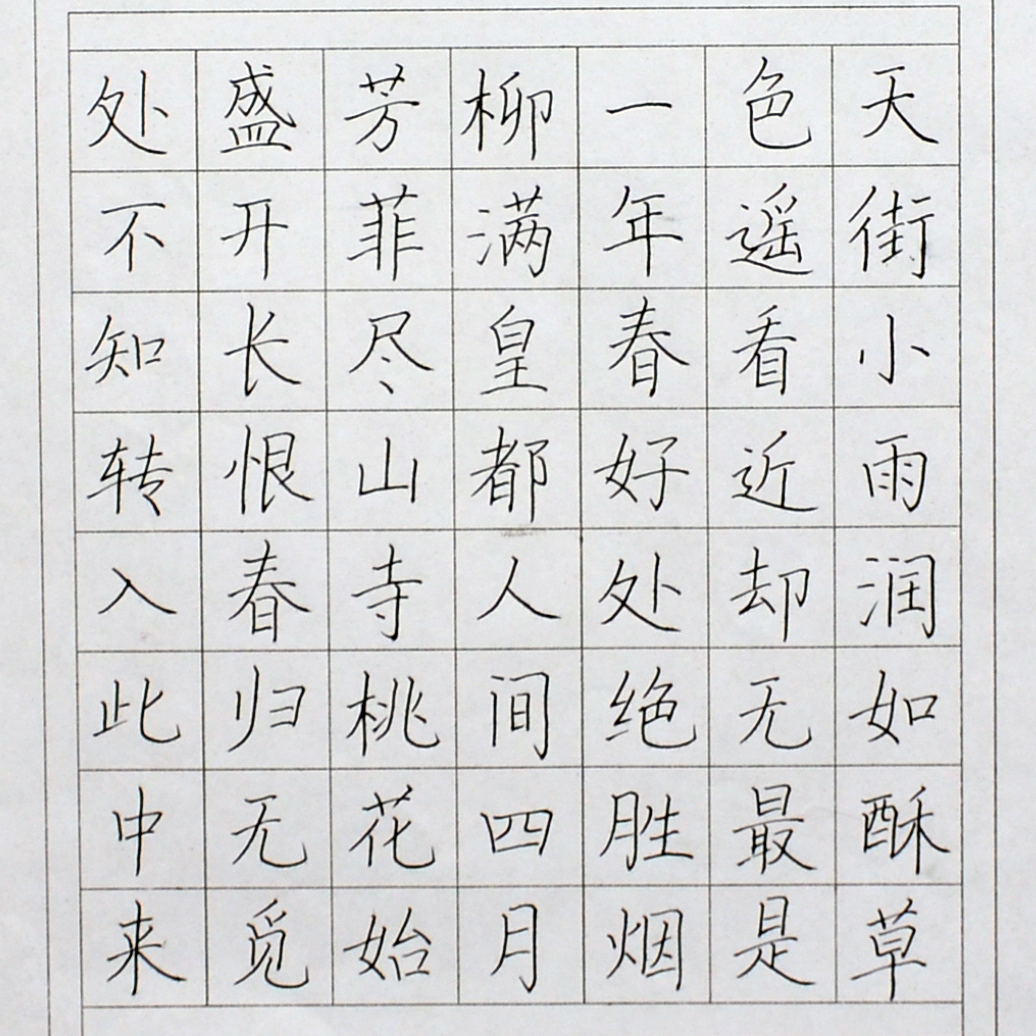 天街小雨润如酥草
色遥看近却无最是
一年春好处绝胜烟
柳满皇都人间四月
芳菲尽山寺桃花始
盛开长恨春归无觅
处不知转入此中来